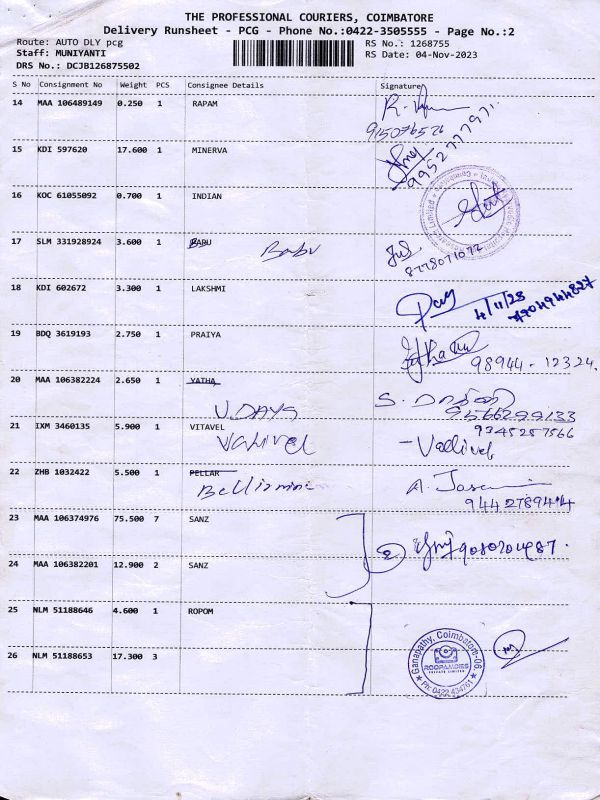 THE PROFESSIONAL COURIERS, COIMBATORE
Delivery Runsheet - PCG - Phone No.:0422-3505555 - Page No.:2
Route: AUTO DLY pcg
Staff: MUNIYANTI
DRS No.: DCJB126875502
RS No.: 1268755
RS Date: 04-Nov-2023
S No Consignment No Weight PCS Consignee Details Signature
14 MAA 106489149 0.250 1 RAPAM
15 KDI 597620 17.600 1 MINERVA
9952777971
16 KOC 61055092 0.700 1 INDIAN
17 SLM 331928924 3.600 1 BABU Babu
8778071072
18 KDI 602672 3.300 1 LAKSHMI
4/11/23
7904944827
19 BDQ 3619193 2.750 1 PRAIYA
98944-12324.
20 MAA 106382224 2.650 1 YATHA
U.DAYA
9566299133
21 IXM 3460135 5.900 1 VITAVEL
9345287566
Vadivel
22 ZHB 1032422 5.500 1 PELLAR
23 MAA 106374976 75.500 7 SANZ
24 MAA 106382201 12.900 2 SANZ
25 NLM 51188646 4.600 1 ROPOM
26 NLM 51188653 17.300 3
Ganapathy, Coimbatore-06
ROOPAMDIES
PRIVATE LIMITED
Ph: 0422 434761